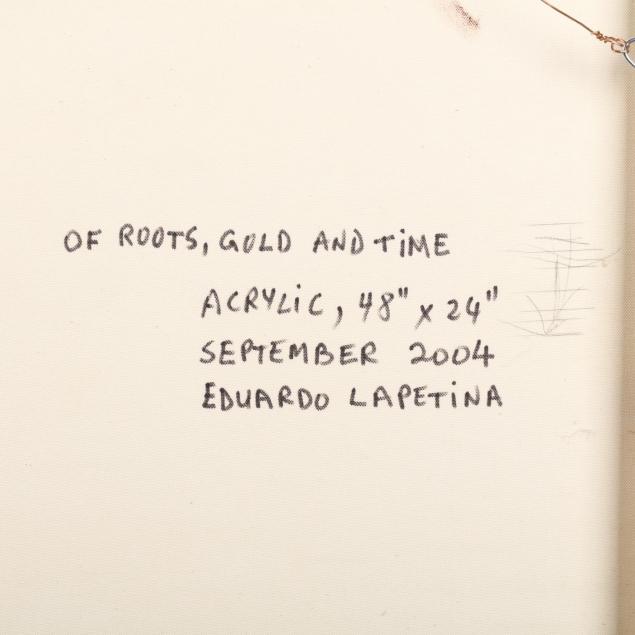 OF ROOTS, GOLD AND TiME
ACRYLiC, 48" x 24"
SEPTEMBER 2004
EDUARDO LAPETiNA